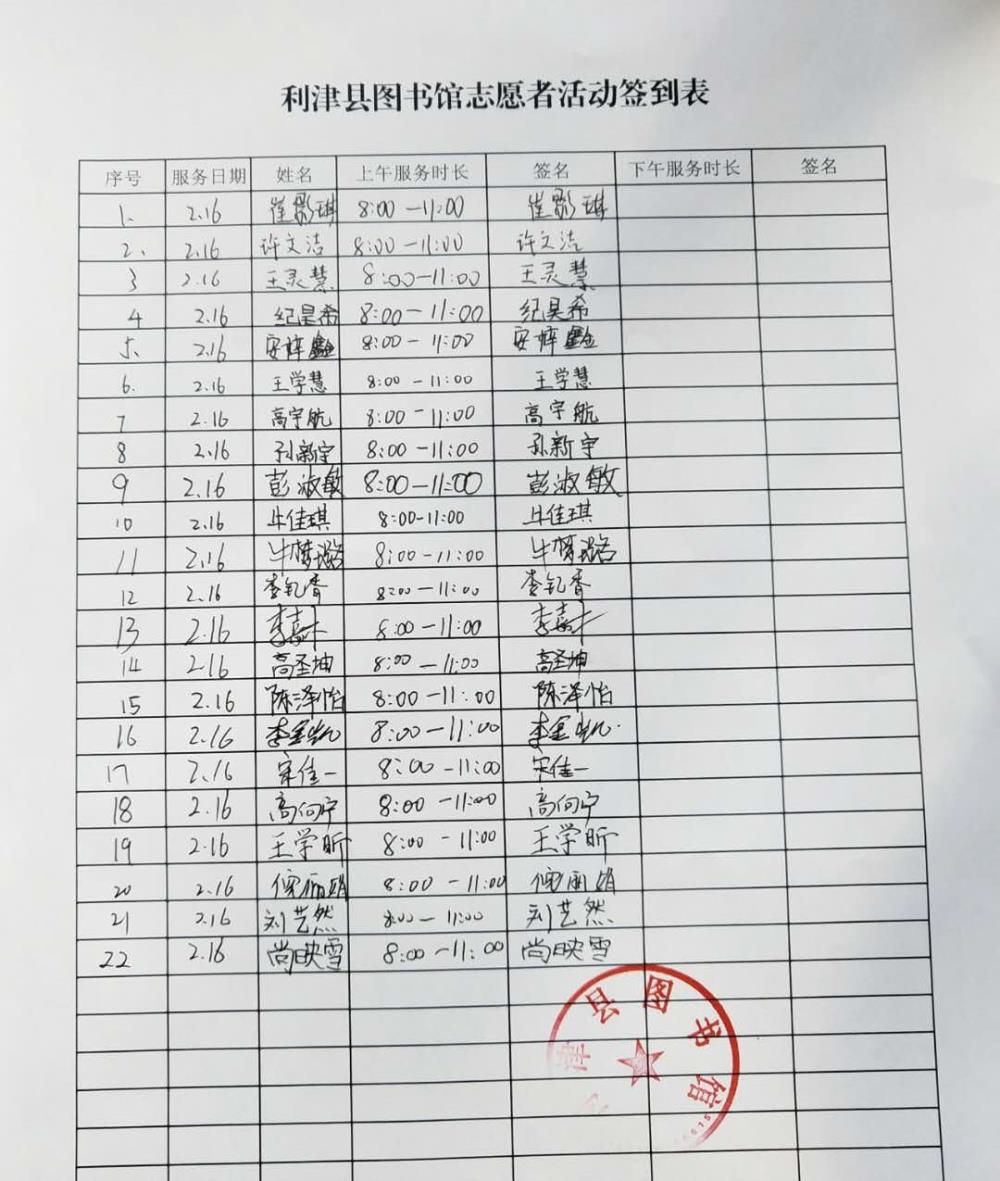 利津县图书馆志愿者活动签到表
序号 服务日期 姓名 上午服务时长 签名 下午服务时长 签名
1. 2.16 崔影琪 8:00-11:00 崔影琪
2. 2.16 许文洁 8:00-11:00 许文洁
3 2.16 王灵慧 8:00-11:00 王灵慧
4 2.16 纪昊希 8:00-11:00 纪昊希
5. 2.16 安梓鑫 8:00-11:00 安梓鑫
6. 2.16 王学慧 8:00-11:00 王学慧
7 2.16 高宇航 8:00-11:00 高宇航
8 2.16 孙新宇 8:00-11:00 孙新宇
9 2.16 彭淑敏 8:00-11:00 彭淑敏
10 2.16 牛佳琪 8:00-11:00 牛佳琪
11 2.16 牛梦璐 8:00-11:00 牛梦璐
12 2.16 8:00-11:00
13 2.16 8:00-11:00
14 2.16 高圣坤 8:00-11:00 高圣坤
15 2.16 陈泽怡 8:00-11:00 陈泽怡
16 2.16 李金凯 8:00-11:00 李金凯.
17 2.16 宋佳一 8:00-11:00 宋佳一
18 2.16 高向宁 8:00-11:00 高向宁
19 2.16 王学昕 8:00-11:00 王学昕
20 2.16 倪丽娟 8:00-11:00 倪丽娟
21 2.16 刘艺然 8:00-11:00 刘艺然
22 2.16 尚映雪 8:00-11:00 尚映雪
津县图书馆